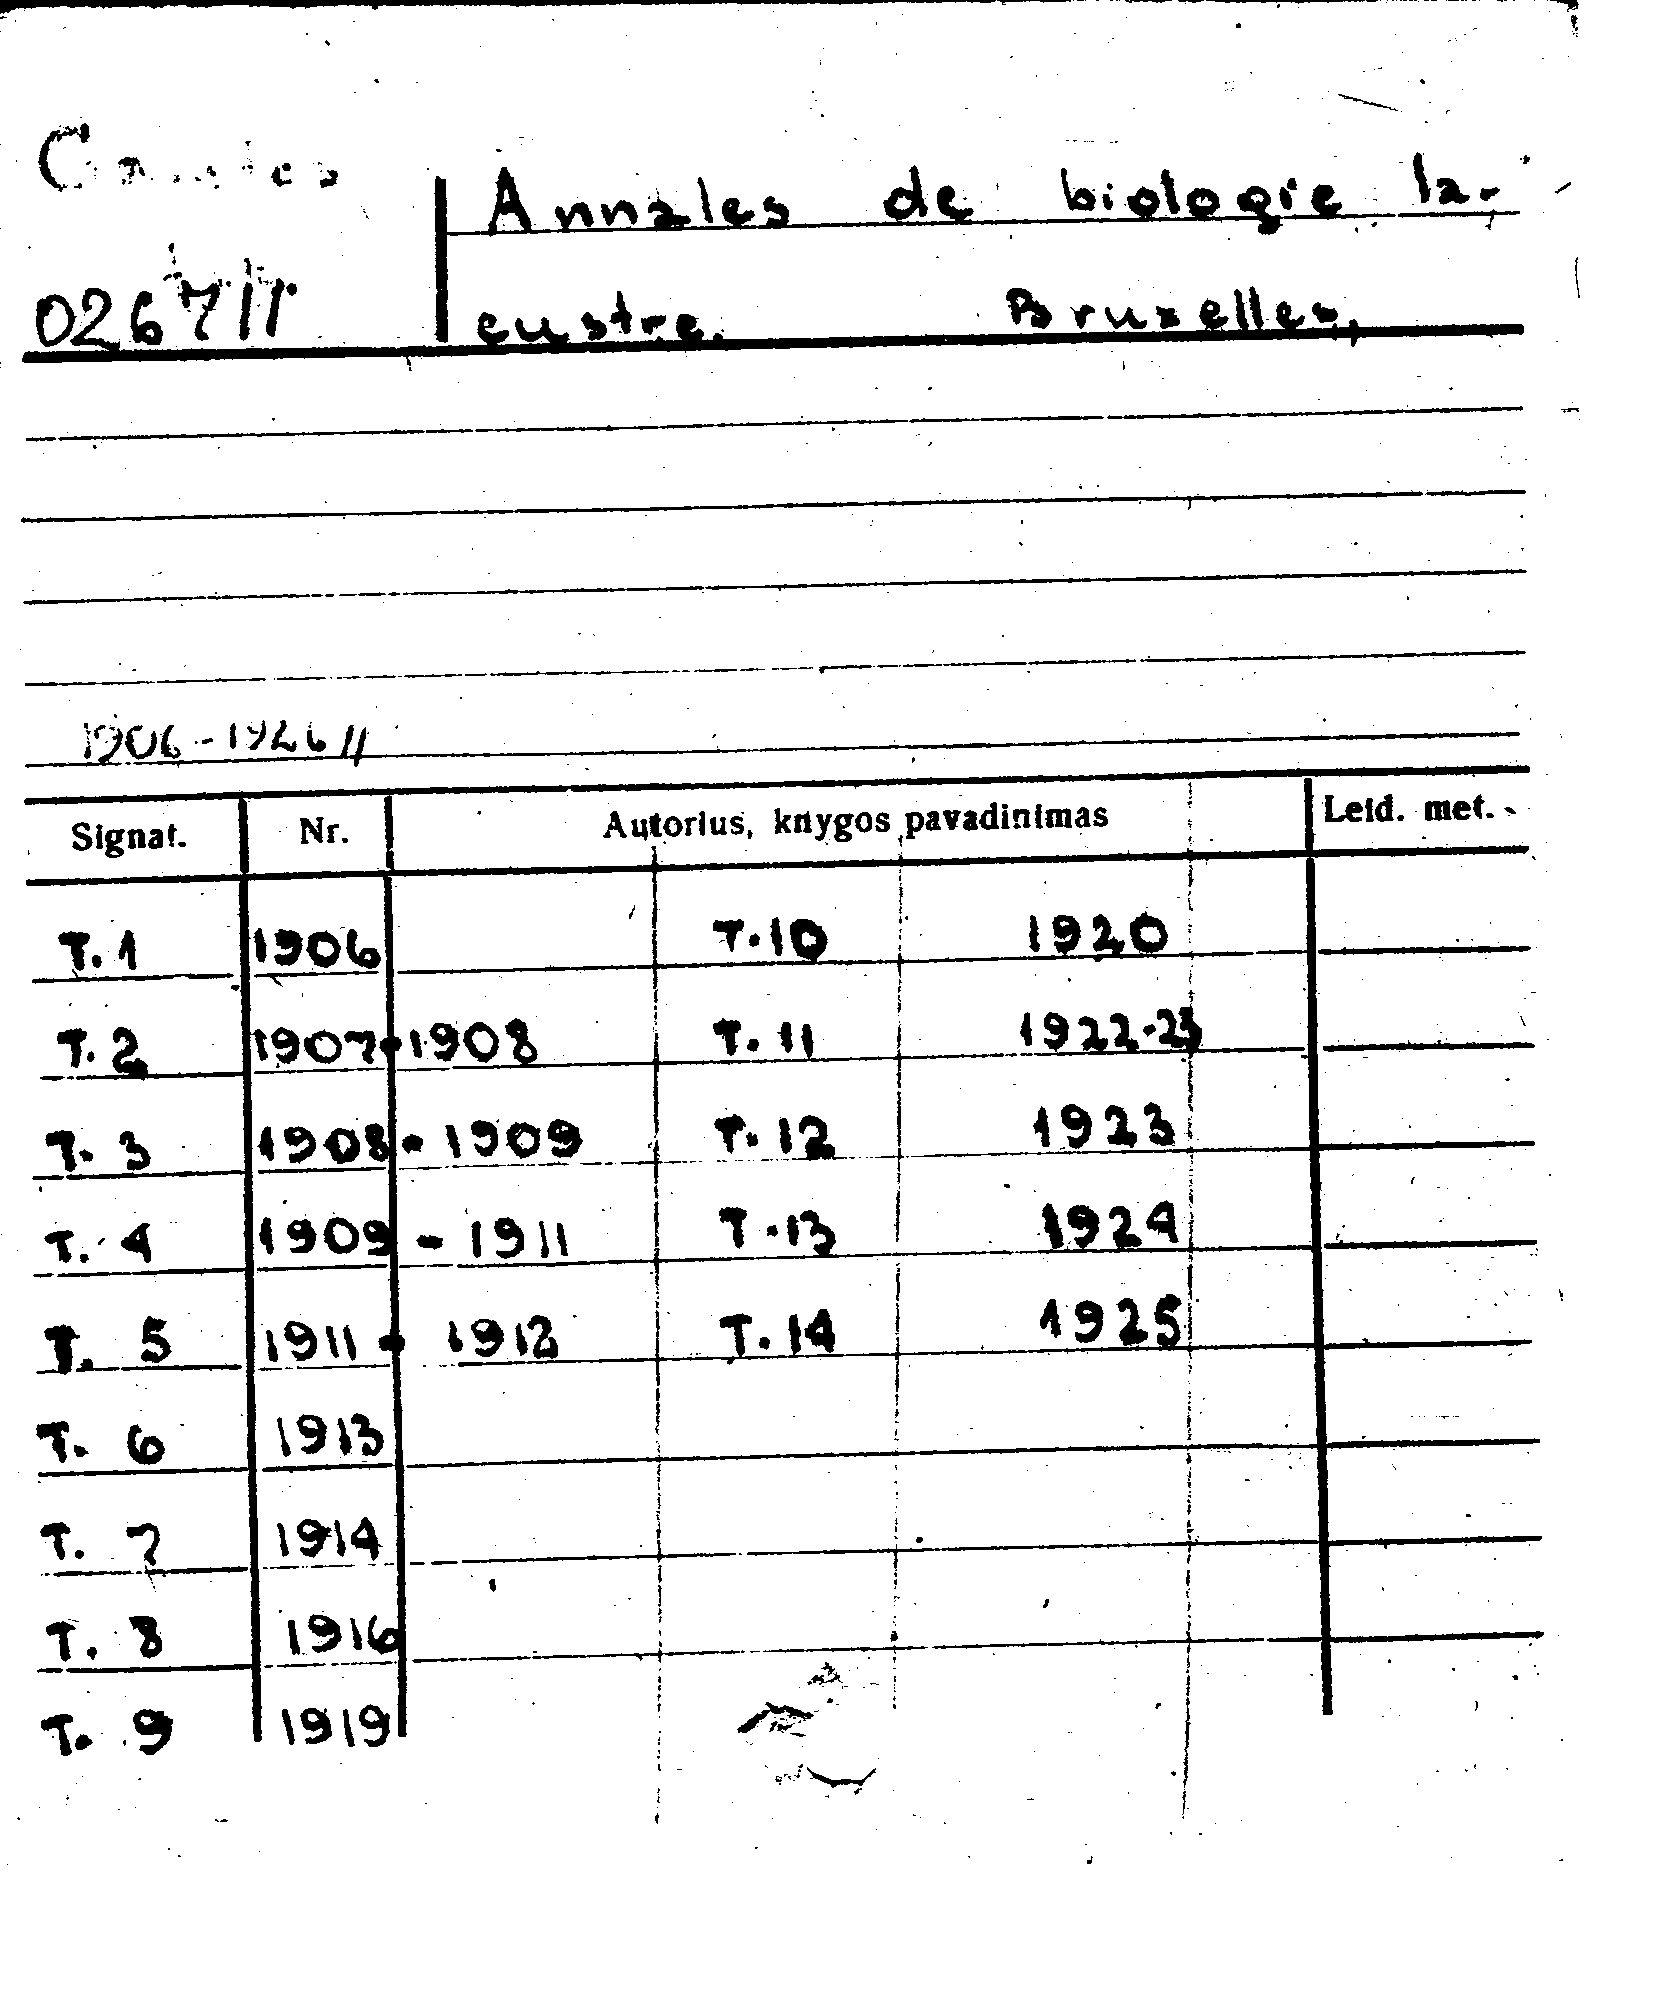 Annales de biologie la-
026711
custre. Bruxelles,
1906-1926 //
Signat. Nr. Autorius, knygos pavadinimas Leid. met.
T.1 1906 T.10 1920
T.2 1907-1908 T.11 1922-23
T.3 1908-1909 T.12 1923
T.4 1909-1911 T.13 1924
T.5 1911-1912 T.14 1925
T.6 1913
T.7 1914
T.8 1916
T.9 1919